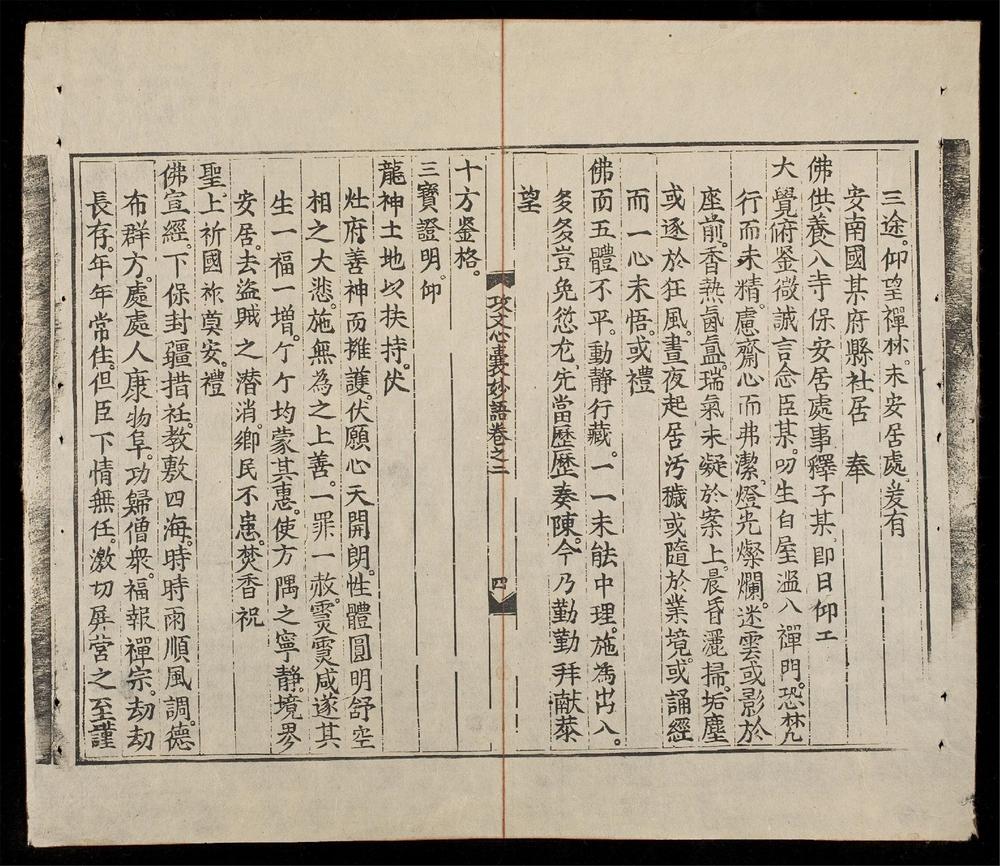 三途。仰望禪林。未安居處。爰有
安南國某府縣社居　奉
佛供養入寺保安居處事釋子某。即日仰工
大覺俯鉴微誠言念臣某。叨生白屋溢入禪門。恐梵
行而未精。慮齋心而弗潔。燈光燦爛。迷雲或影於
座前。香熱氤氳。瑞氣未凝於案上。晨昏灑掃。垢塵
或逐於狂風。晝夜起居汚穢或隨於業境。或誦經
而一心未悟。或禮
佛而五體不平。動靜行藏。一一未能中理。施為出入。
多多豈免愆尤。先當歷歷奏陳。今乃勤勤拜献菜
望
攻文心囊妙語卷之二　四
十方鉴格。
三寳證明。仰
龍神土地以扶持。伏
灶府善神而摧護。伏願心天開朗。性體圓明舒空
相之大悲。施無為之上善。一罪一赦。靈靈咸遂其
生一福一增。个个均蒙其惠。使方隅之寧靜。境界
安居。去盜賊之潜消。鄉民不患。焚香祝
聖。上祈國祚奠安。禮
佛宣經。下保封疆措袵。教敷四海。時時雨順風調。德
布群方。處處人康物阜。功歸僧衆。福報禪宗。劫劫
長存。年年常住。但臣下情無任。激切屏营之至謹